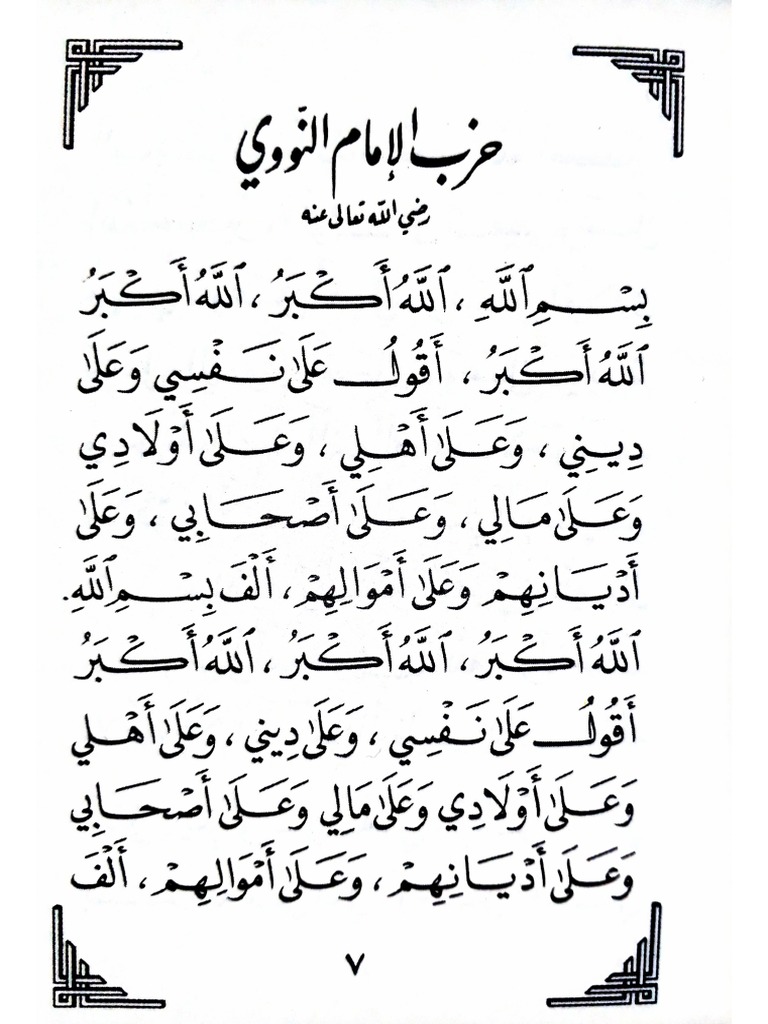 حزب الإمام النّووي
رضي الله تعالى عنه
بِسْمِ ٱللَّهِ ، ٱللَّهُ أَكْبَرُ ، ٱللَّهُ أَكْبَرُ
ٱللَّهُ أَكْبَرُ ، أَقُولُ عَلَىٰ نَفْسِي وَعَلَىٰ
دِينِي ، وَعَلَىٰ أَهْلِي ، وَعَلَىٰ أَوْلَادِي
وَعَلَىٰ مَالِي ، وَعَلَىٰ أَصْحَابِي ، وَعَلَىٰ
أَدْيَانِهِمْ وَعَلَىٰ أَمْوَالِهِمْ ، أَلْفَ بِسْمِ ٱللَّهِ .
ٱللَّهُ أَكْبَرُ ، ٱللَّهُ أَكْبَرُ ، ٱللَّهُ أَكْبَرُ
أَقُولُ عَلَىٰ نَفْسِي ، وَعَلَىٰ دِينِي ، وَعَلَىٰ أَهْلِي
وَعَلَىٰ أَوْلَادِي وَعَلَىٰ مَالِي وَعَلَىٰ أَصْحَابِي
وَعَلَىٰ أَدْيَانِهِمْ ، وَعَلَىٰ أَمْوَالِهِمْ ، أَلْفَ
٧